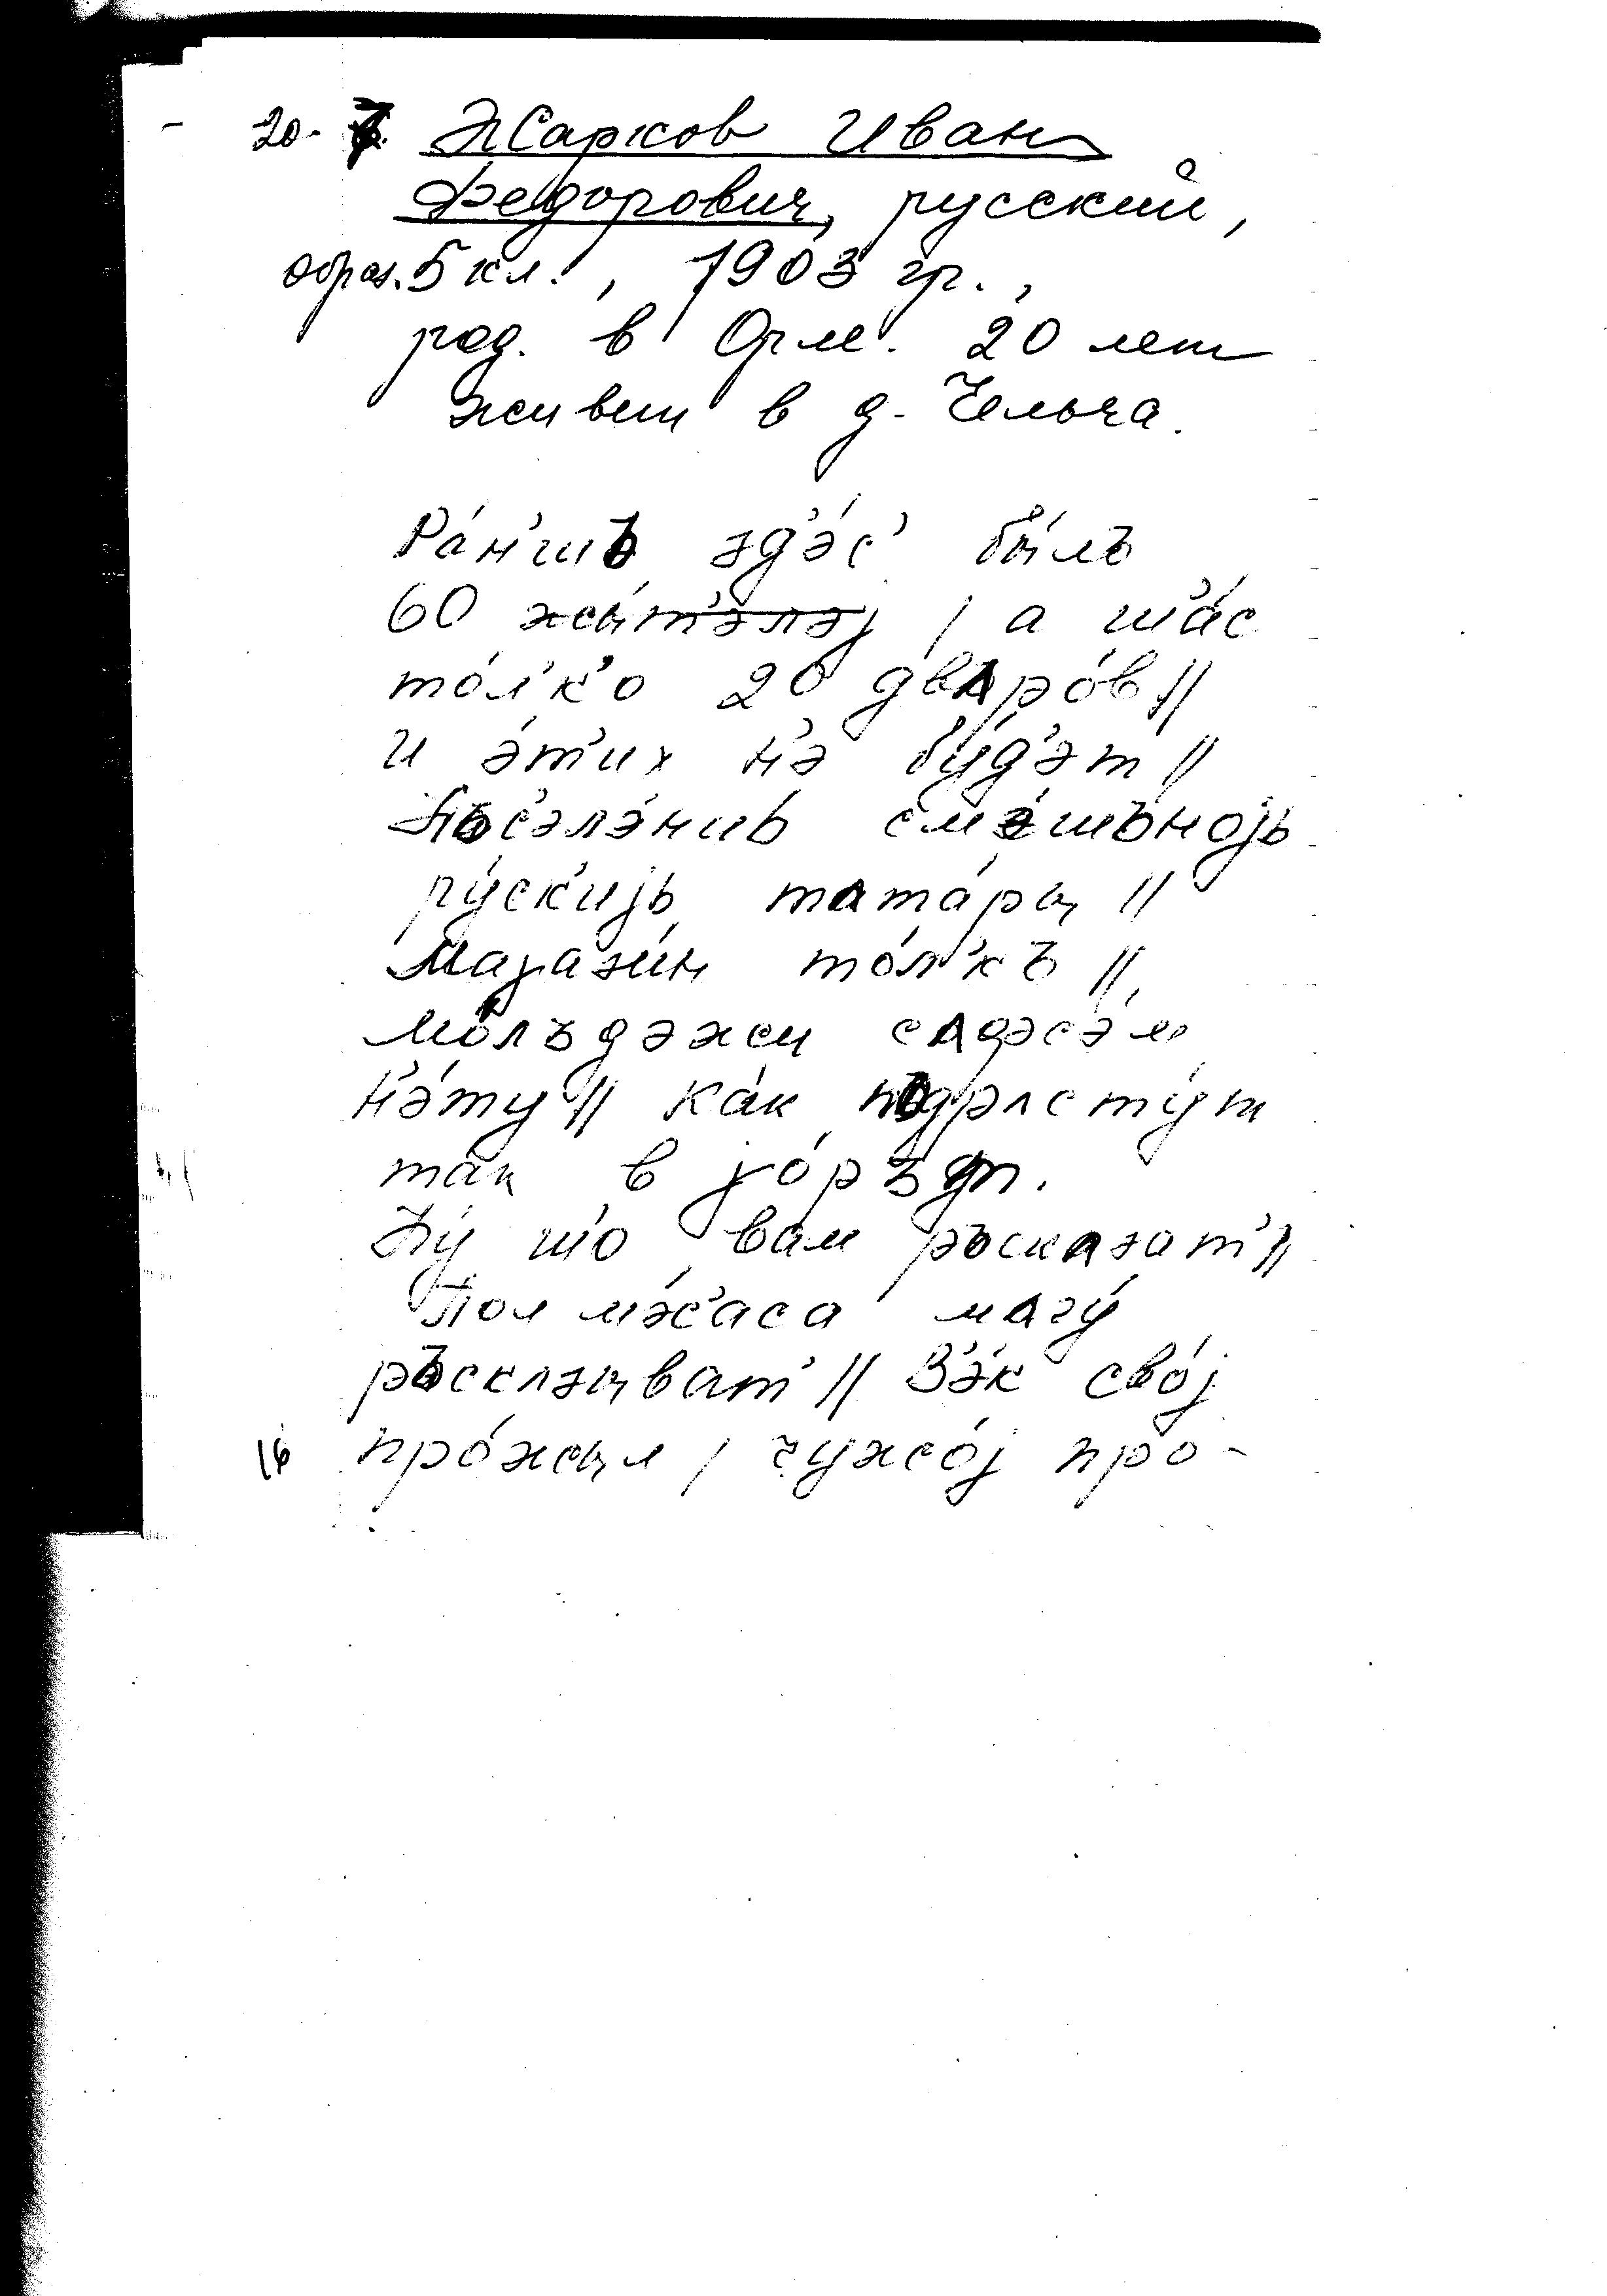 20. 7. Жарков Иван
Федорович, русский,
образ. 5 кл., 1903 гр.,
род. в Орле. 20 лет
живет в д. Чельча.
Ра́н'шъ зд'э́с' бы́лъ
60 жы́т'эл'эј / а ш'а́с
то́л'к'о 20 двʌро́в //
и э́т'их н'э бу́д'эт //
Пъс'эл'э́нијь см'э́шънојь
ру́ск'ијь тʌта́ры //
Магаз'и́н то́л'къ //
мо́лъд'эжи сʌфс'э́м
н'э́ту // ка́к пъдрʌсту́т
та́к в го́рът.
Ну́ шо вам ръскʌзат' //
Пол м'э́с'аса мʌгу́
ръскʌзыват' // В'э́к сво́ј
про́жыл / чужо́ј про-
16